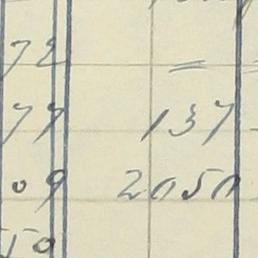 72 =
77 137
09 2050
50